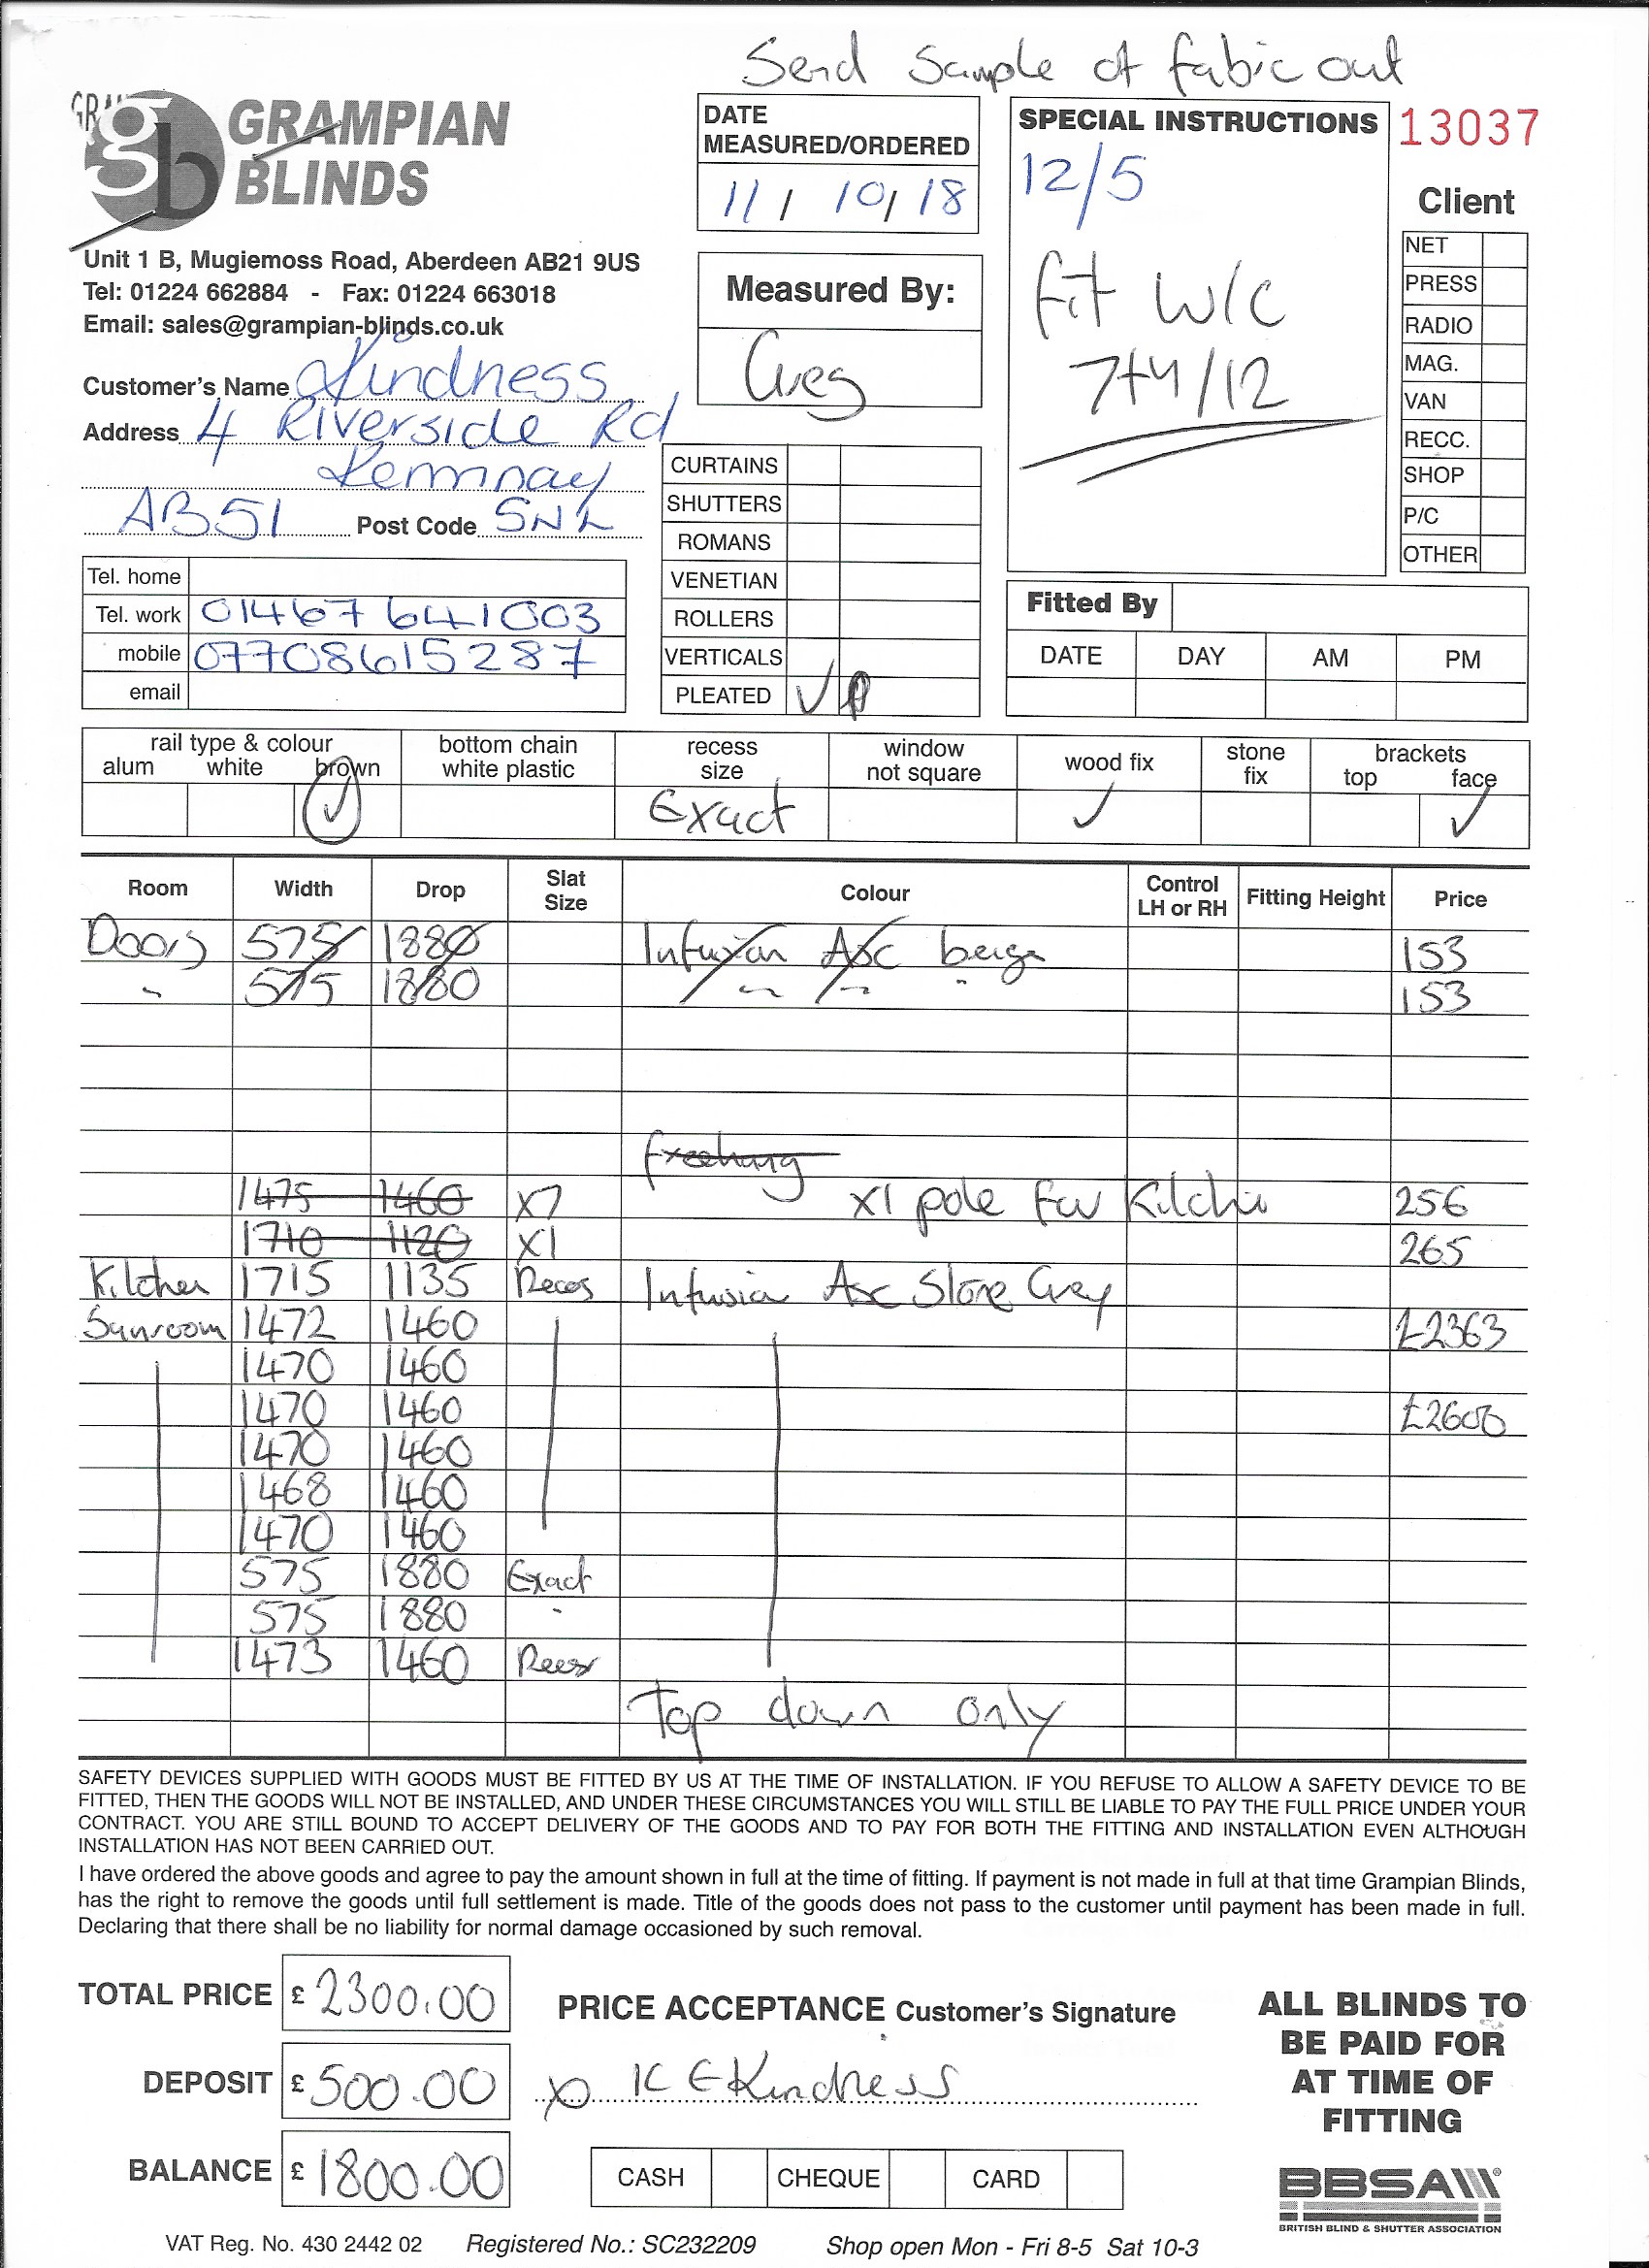 Send Sample of fabic out
GRAMPIAN
BLINDS
gb
Unit 1 B, Mugiemoss Road, Aberdeen AB21 9US
Tel: 01224 662884 - Fax: 01224 663018
Email: sales@grampian-blinds.co.uk
Customer's Name Kindness
Address 4 Riverside Rd
Kemnay
AB51 Post Code 5NL
Tel. home
Tel. work 01467 641003
mobile 07708615287
email
DATE
MEASURED/ORDERED
11 / 10 / 18
Measured By:
Greg
CURTAINS
SHUTTERS
ROMANS
VENETIAN
ROLLERS
VERTICALS
PLEATED ✓
SPECIAL INSTRUCTIONS
12/5
Fit W/C
7+4/12
13037
Client
NET
PRESS
RADIO
MAG.
VAN
RECC.
SHOP
P/C
OTHER
Fitted By
DATE DAY AM PM
rail type & colour
alum white brown ✓
bottom chain
white plastic
recess
size
Exact
window
not square
wood fix ✓
stone
fix
brackets
top face ✓
Room Width Drop Slat Size Colour Control LH or RH Fitting Height Price
Doors 575 1880 Infusion Asc beige 153
" 575 1880 " " " 153
freehang
1475 1460 X7 X1 pole For Kitchen 256
1710 1120 X1 265
Kitchen 1715 1135 Recess Infusion Asc Stone Grey
Sunroom 1472 1460 £2363
1470 1460
1470 1460 £2600
1470 1460
1468 1460
1470 1460
575 1880 Exact
575 1880 "
1473 1460 Recess
Top down only
SAFETY DEVICES SUPPLIED WITH GOODS MUST BE FITTED BY US AT THE TIME OF INSTALLATION. IF YOU REFUSE TO ALLOW A SAFETY DEVICE TO BE
FITTED, THEN THE GOODS WILL NOT BE INSTALLED, AND UNDER THESE CIRCUMSTANCES YOU WILL STILL BE LIABLE TO PAY THE FULL PRICE UNDER YOUR
CONTRACT. YOU ARE STILL BOUND TO ACCEPT DELIVERY OF THE GOODS AND TO PAY FOR BOTH THE FITTING AND INSTALLATION EVEN ALTHOUGH
INSTALLATION HAS NOT BEEN CARRIED OUT.
I have ordered the above goods and agree to pay the amount shown in full at the time of fitting. If payment is not made in full at that time Grampian Blinds,
has the right to remove the goods until full settlement is made. Title of the goods does not pass to the customer until payment has been made in full.
Declaring that there shall be no liability for normal damage occasioned by such removal.
TOTAL PRICE £ 2300.00
DEPOSIT £ 500.00
BALANCE £ 1800.00
PRICE ACCEPTANCE Customer's Signature
x K E Kindness
CASH CHEQUE CARD
ALL BLINDS TO
BE PAID FOR
AT TIME OF
FITTING
BBSA
BRITISH BLIND & SHUTTER ASSOCIATION
VAT Reg. No. 430 2442 02 Registered No.: SC232209 Shop open Mon - Fri 8-5 Sat 10-3